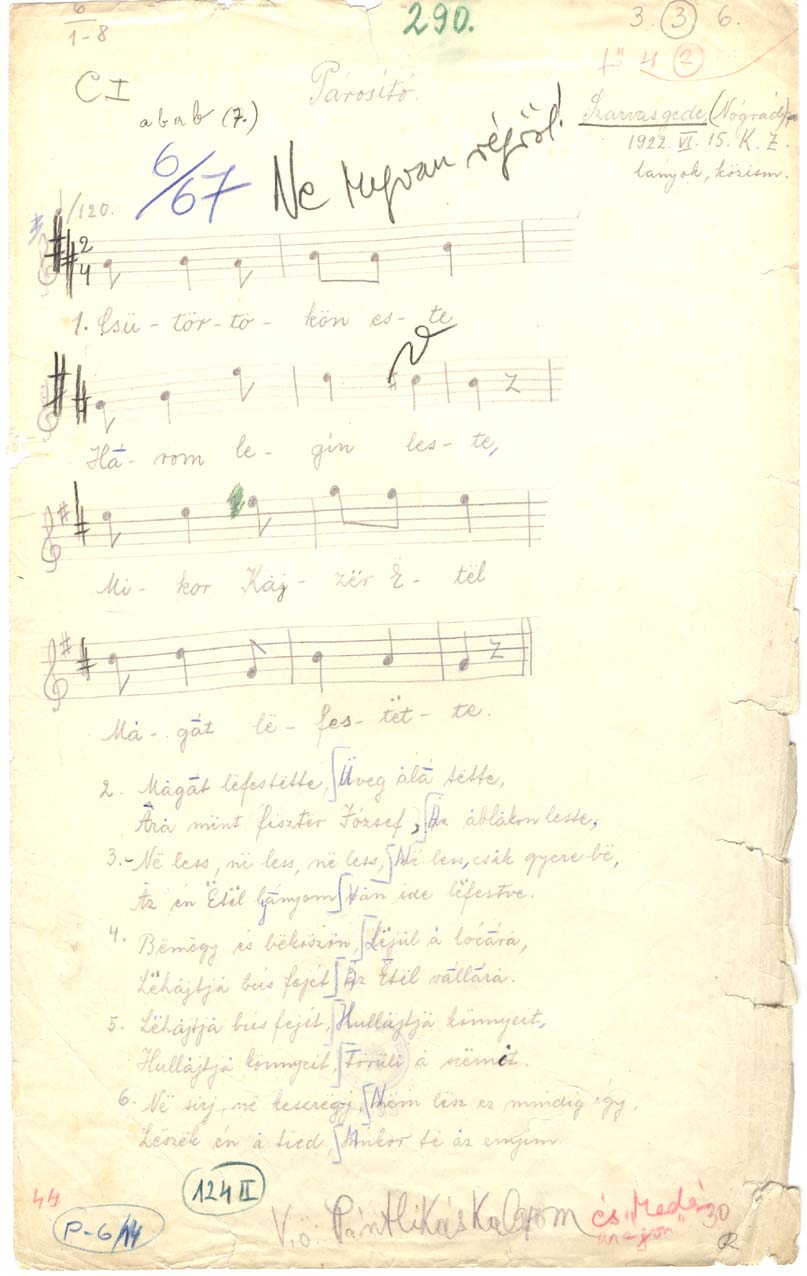 6
1-8
290.
3. 3 6.
4 2
C I
Párosító.
a b a b (7.)
Szarvasgede (Nógrád),
1922. VI. 15. K. Z.
lányok, közism.
6/67
Ne régiről!
/120.
2
4
1. Csü - tör - tö - kön es - te
Há - rom le - gín les - te,
Mi - kor Káj - zër Ë - tël
Má - gát lë - fes - tët - te.
2. Mágát lëfestëtte, Üveg álá tëtte,
Árá mint fisztër József, Áz áblákon leste,
3. - Në less, në less, në less, Në less, csák gyere bë,
Áz én Ëtël lányom Ván ide lëfestve.
4. Bëmëgy és bëköszön, Lëjül á locárá,
Lëhájtjá bús fejét Áz Ëtël vállárá.
5. Lëhájtjá bús fejét, Hullájtjá könnyeit,
Hullájtjá könnyeit, Törüli á szëmit.
6. Në sírj, në keseregj, Nëm lësz ez mindig így,
Lëszëk én á tied, Mikor të áz enyím
44
124 II
P-6/14
V.ö: Pántlikás Kalapom
és "Medá
30